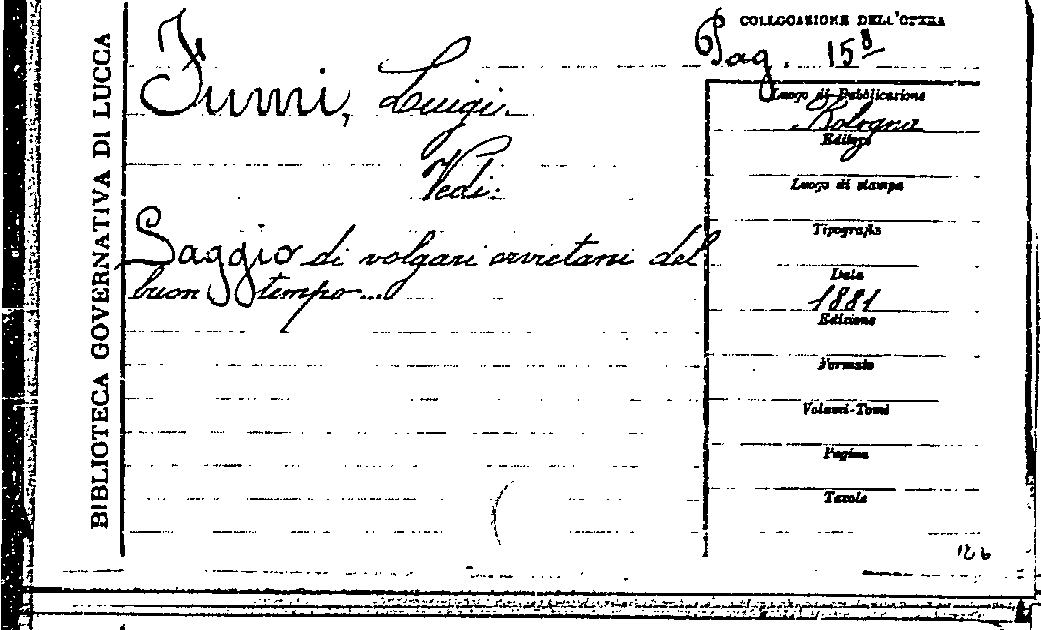 BIBLIOTECA GOVERNATIVA DI LUCCA
COLLOCAZIONE DELL'OPERA
Pag. 15 8
Fumi, Luigi.
Vedi:
Saggio di volgari orvietani del
buon tempo...
Luogo di Pubblicazione
Bologna
Editore
Luogo di stampa
Tipografia
Data
1881
Edizione
Formato
Volumi-Tomi
Pagine
Tavole